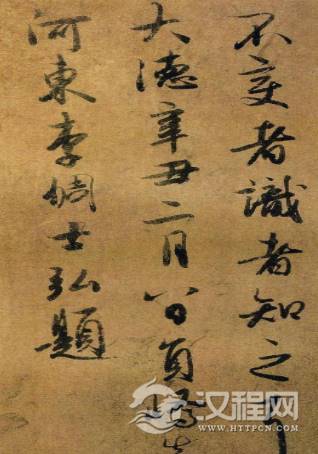 不者識者知之
大德辛丑二月八日員嶠
河東李倜士弘題
汉程网
WWW.HTTPCN.COM